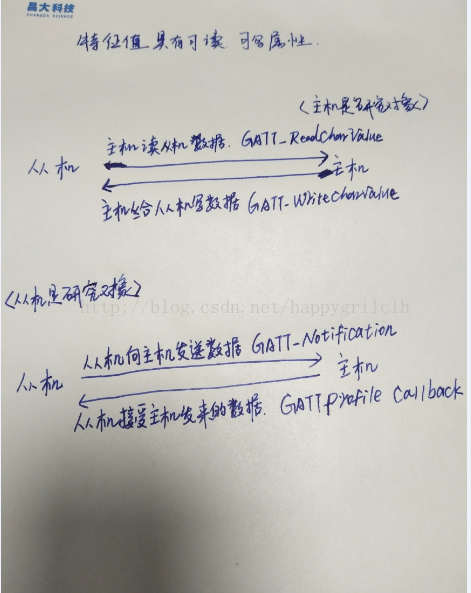 昌大科技
SHANGDA SCIENCE
特征值具有可读 可写属性.
(主机是研究对象)
主机读从机数据. GATT_ReadCharValue
从机
主机
主机给从机写数据 GATT-WriteCharValue
(从机是研究对象)
http://blog.csdn.net/happygrilclh
从机向主机发送数据 GATT-Notification
从机
主机
从机接受主机发来的数据. GATTprofile Callback